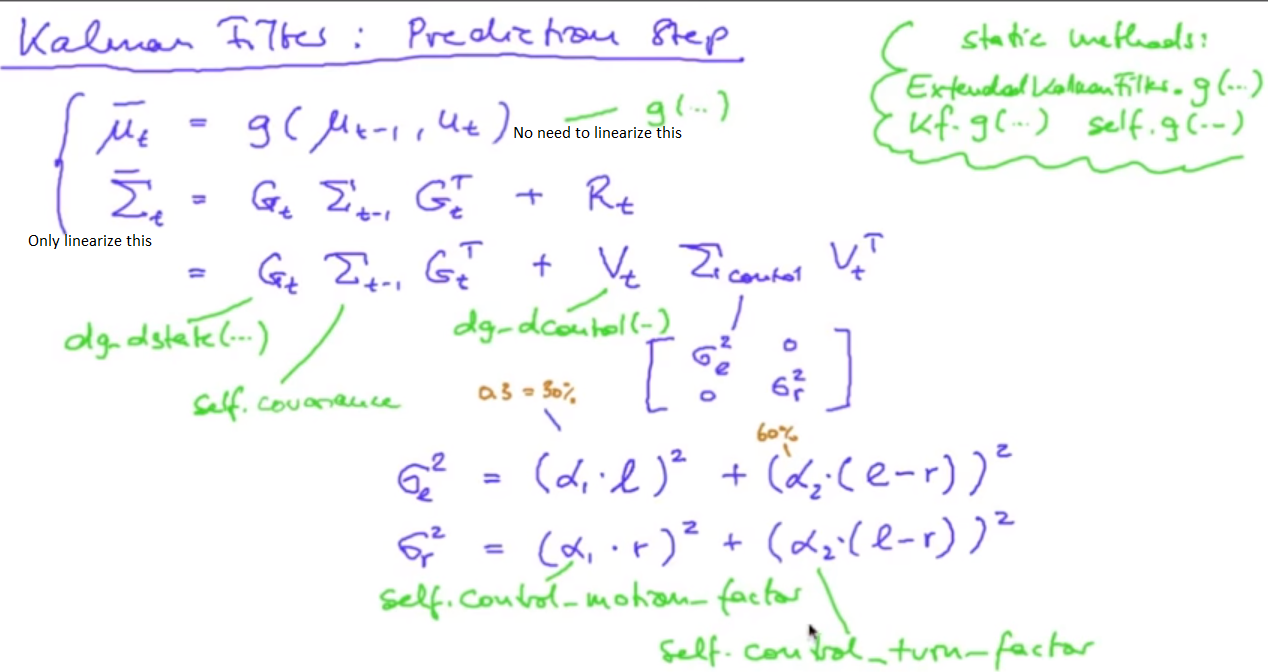 Kalman Filter: Prediction Step
static methods:
ExtendedKalmanFilter.g(...)
Kf.g(...) self.g(--)
μ̄ₜ = g(μₜ₋₁, uₜ) No need to linearize this
g(...)
Σ̄ₜ = Gₜ Σₜ₋₁ Gₜᵀ + Rₜ
Only linearize this
= Gₜ Σₜ₋₁ Gₜᵀ + Vₜ Σcontrol Vₜᵀ
dg_dstate(...)
dg_dcontrol(-)
self.covariance
[ σₗ² 0
0 σᵣ² ]
0.3 = 30%
60%
σₗ² = (α₁·l)² + (α₂·(l-r))²
σᵣ² = (α₁·r)² + (α₂·(l-r))²
self.control_motion_factor
self.control_turn_factor